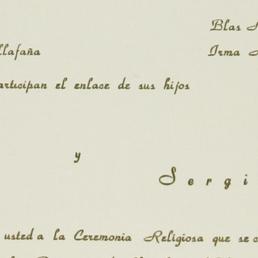 Blas
llafaña Irma
articipan el enlace de sus hijos
y
Sergi
usted a la Ceremonia Religiosa que se